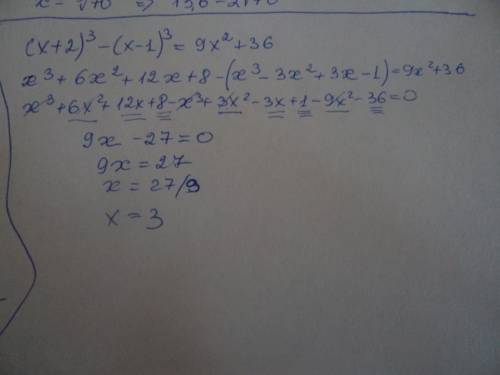 (x+2)³-(x-1)³=9x²+36
x³+6x²+12x+8-(x³-3x²+3x-1)=9x²+36
x³+6x²+12x+8-x³+3x²-3x+1-9x²-36=0
9x-27=0
9x=27
x=27/9
x=3